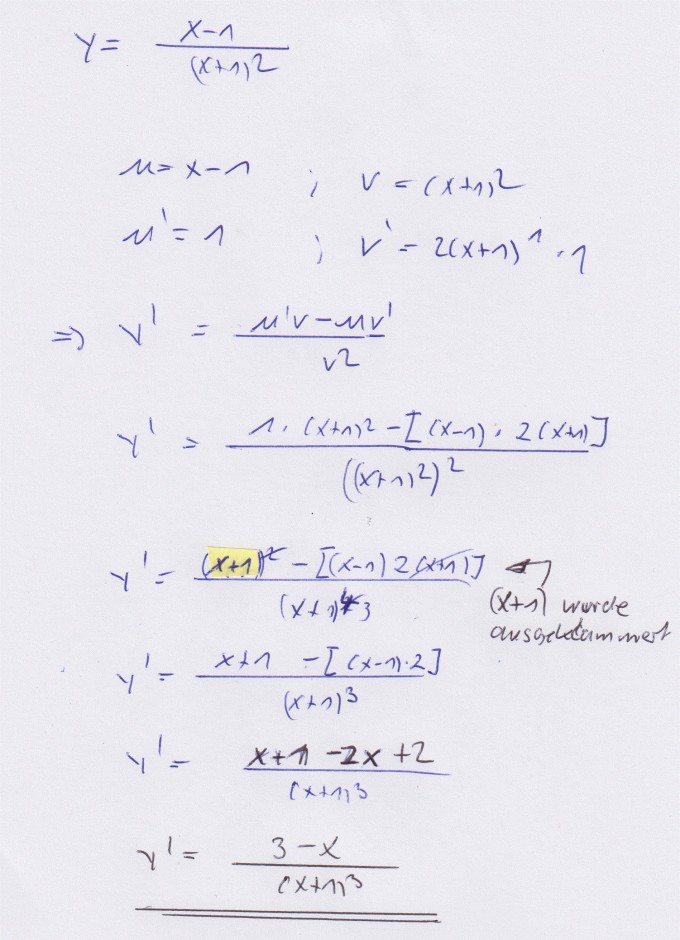 y = (x-1)/(x+1)²
u = x-1 ; v = (x+1)²
u' = 1 ; v' = 2(x+1)¹·1
⇒ y' = (u'v - uv')/v²
y' = (1·(x+1)² - [(x-1)·2(x+1)])/((x+1)²)²
y' = ((x+1)² - [(x-1)2(x+1)])/(x+1)⁴ 3
(x+1) wurde
ausgeklammert
y' = (x+1 - [(x-1)·2])/(x+1)³
y' = (x+1-2x+2)/(x+1)³
y' = (3-x)/(x+1)³